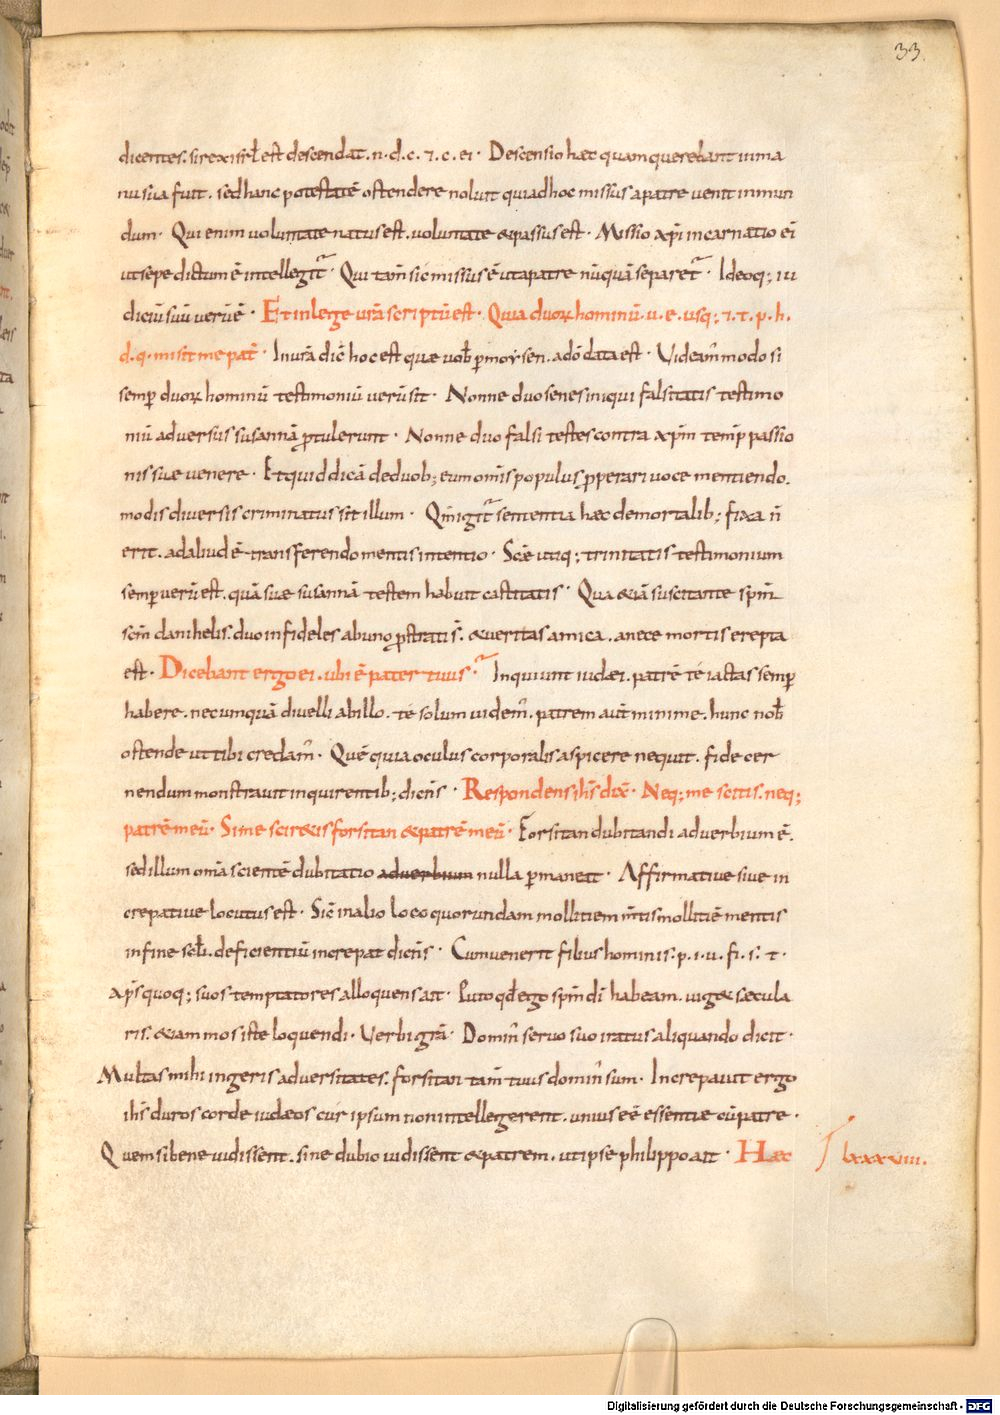 33.
dicentes. si rex isrł est descendat. n. d. c. ⁊. c. ei. Descensio hæc quam querebant iu ma
nu sua fuit. sed hanc potestatē ostendere noluit qui ad hoc missus a patre venit in mun
dum. Qui enim voluntate natus est. voluntate & passus est. Missio xp̄i incarnatio ei
ut sepe dictum ē intellegit᷑. Qui tam̄ sic missus ē ut a patre nūquā separet᷑. Ideoq; iu
diciū suū verū ē. Et in lege vr̄a scriptū est. Quia duoꝝ hominū. u. e. usq; ⁊. t. p. h.
d. q. misit me pat̄. In vr̄a dic̄ hoc est quæ vob̄ ꝑ moysen. a dō data est. Videam̄ modo si
semꝑ duoꝝ hominū testimoniū verū sit. Nonne duo senes iniqui falsitatis testimo
niū adversus susannā ꝓtulerunt. Nonne duo falsi testes contra xp̄m temp̄ passio
nis suæ venere. Et quid dicā de duob; cum omīs populus ꝓperari voce mentiendo.
modis diversis criminatus sit illum. Qm̄ igit᷑ sententia hæc de mortalib; fixa n̄
erit. ad aliud ē transferendo mentis intentio. Scē utiq; trinitatis testimonium
semꝑ verū est. quā suæ susannā testem habuit castitatis. Qua & iā suscitante spm̄
scm̄ danihelis. duo infideles ab uno ꝓstrati s̄. & veritas amica. a nece mortis erepta
est. Dicebant ergo ei. ubi ē pater tuus. Inquiunt iudæi. patrē te iactas semꝑ
habere. nec umquā divelli ab illo. te solum videm̄. patrem aut̄ minime. hunc nob̄
ostende ut tibi credam̄. Quē quia oculus corporalis aspicere nequit. fide cer
nendum monstravit inquirentib; dicēs. Respondens ih̄s dix̄. Neq; me scitis. neq;
patrē meū. Si me scir&is forsitan & patrē meū. Forsitan dubitandi adverbium ē.
sed illum om̄a scientē dubitatio adverbium nulla ꝑmaneat. Affirmative sive in
crepative locutus est. Sic̄ in alio loco quorundam mollitiem m̄tis mollitiē mentis
in fine scł̄i. deficientiū increpat dicēs. Cum venerit filius hominis. p. i. u. fi. s. t.
Ap̄s quoq; suos temptatores alloquens ait. Puto qđ ego spm̄ dī habeam. vig& sæcula
ris. & iam mos iste loquendi. Verbi grā. Domin̄ servo suo iratus aliquando dicit.
Multas mihi ingeris adversitates. forsitan tam̄ tuus domin̄ sum. Increpavit ergo
ih̄s duros corde iudæos cur ipsum non intellegerent. unius eē essentiæ cū patre.
Quem si bene vidissent. sine dubio vidissent & patrem. ut ipse philippo ait. Hæc lxxxviii.
Digitalisierung gefördert durch die Deutsche Forschungsgemeinschaft - DFG